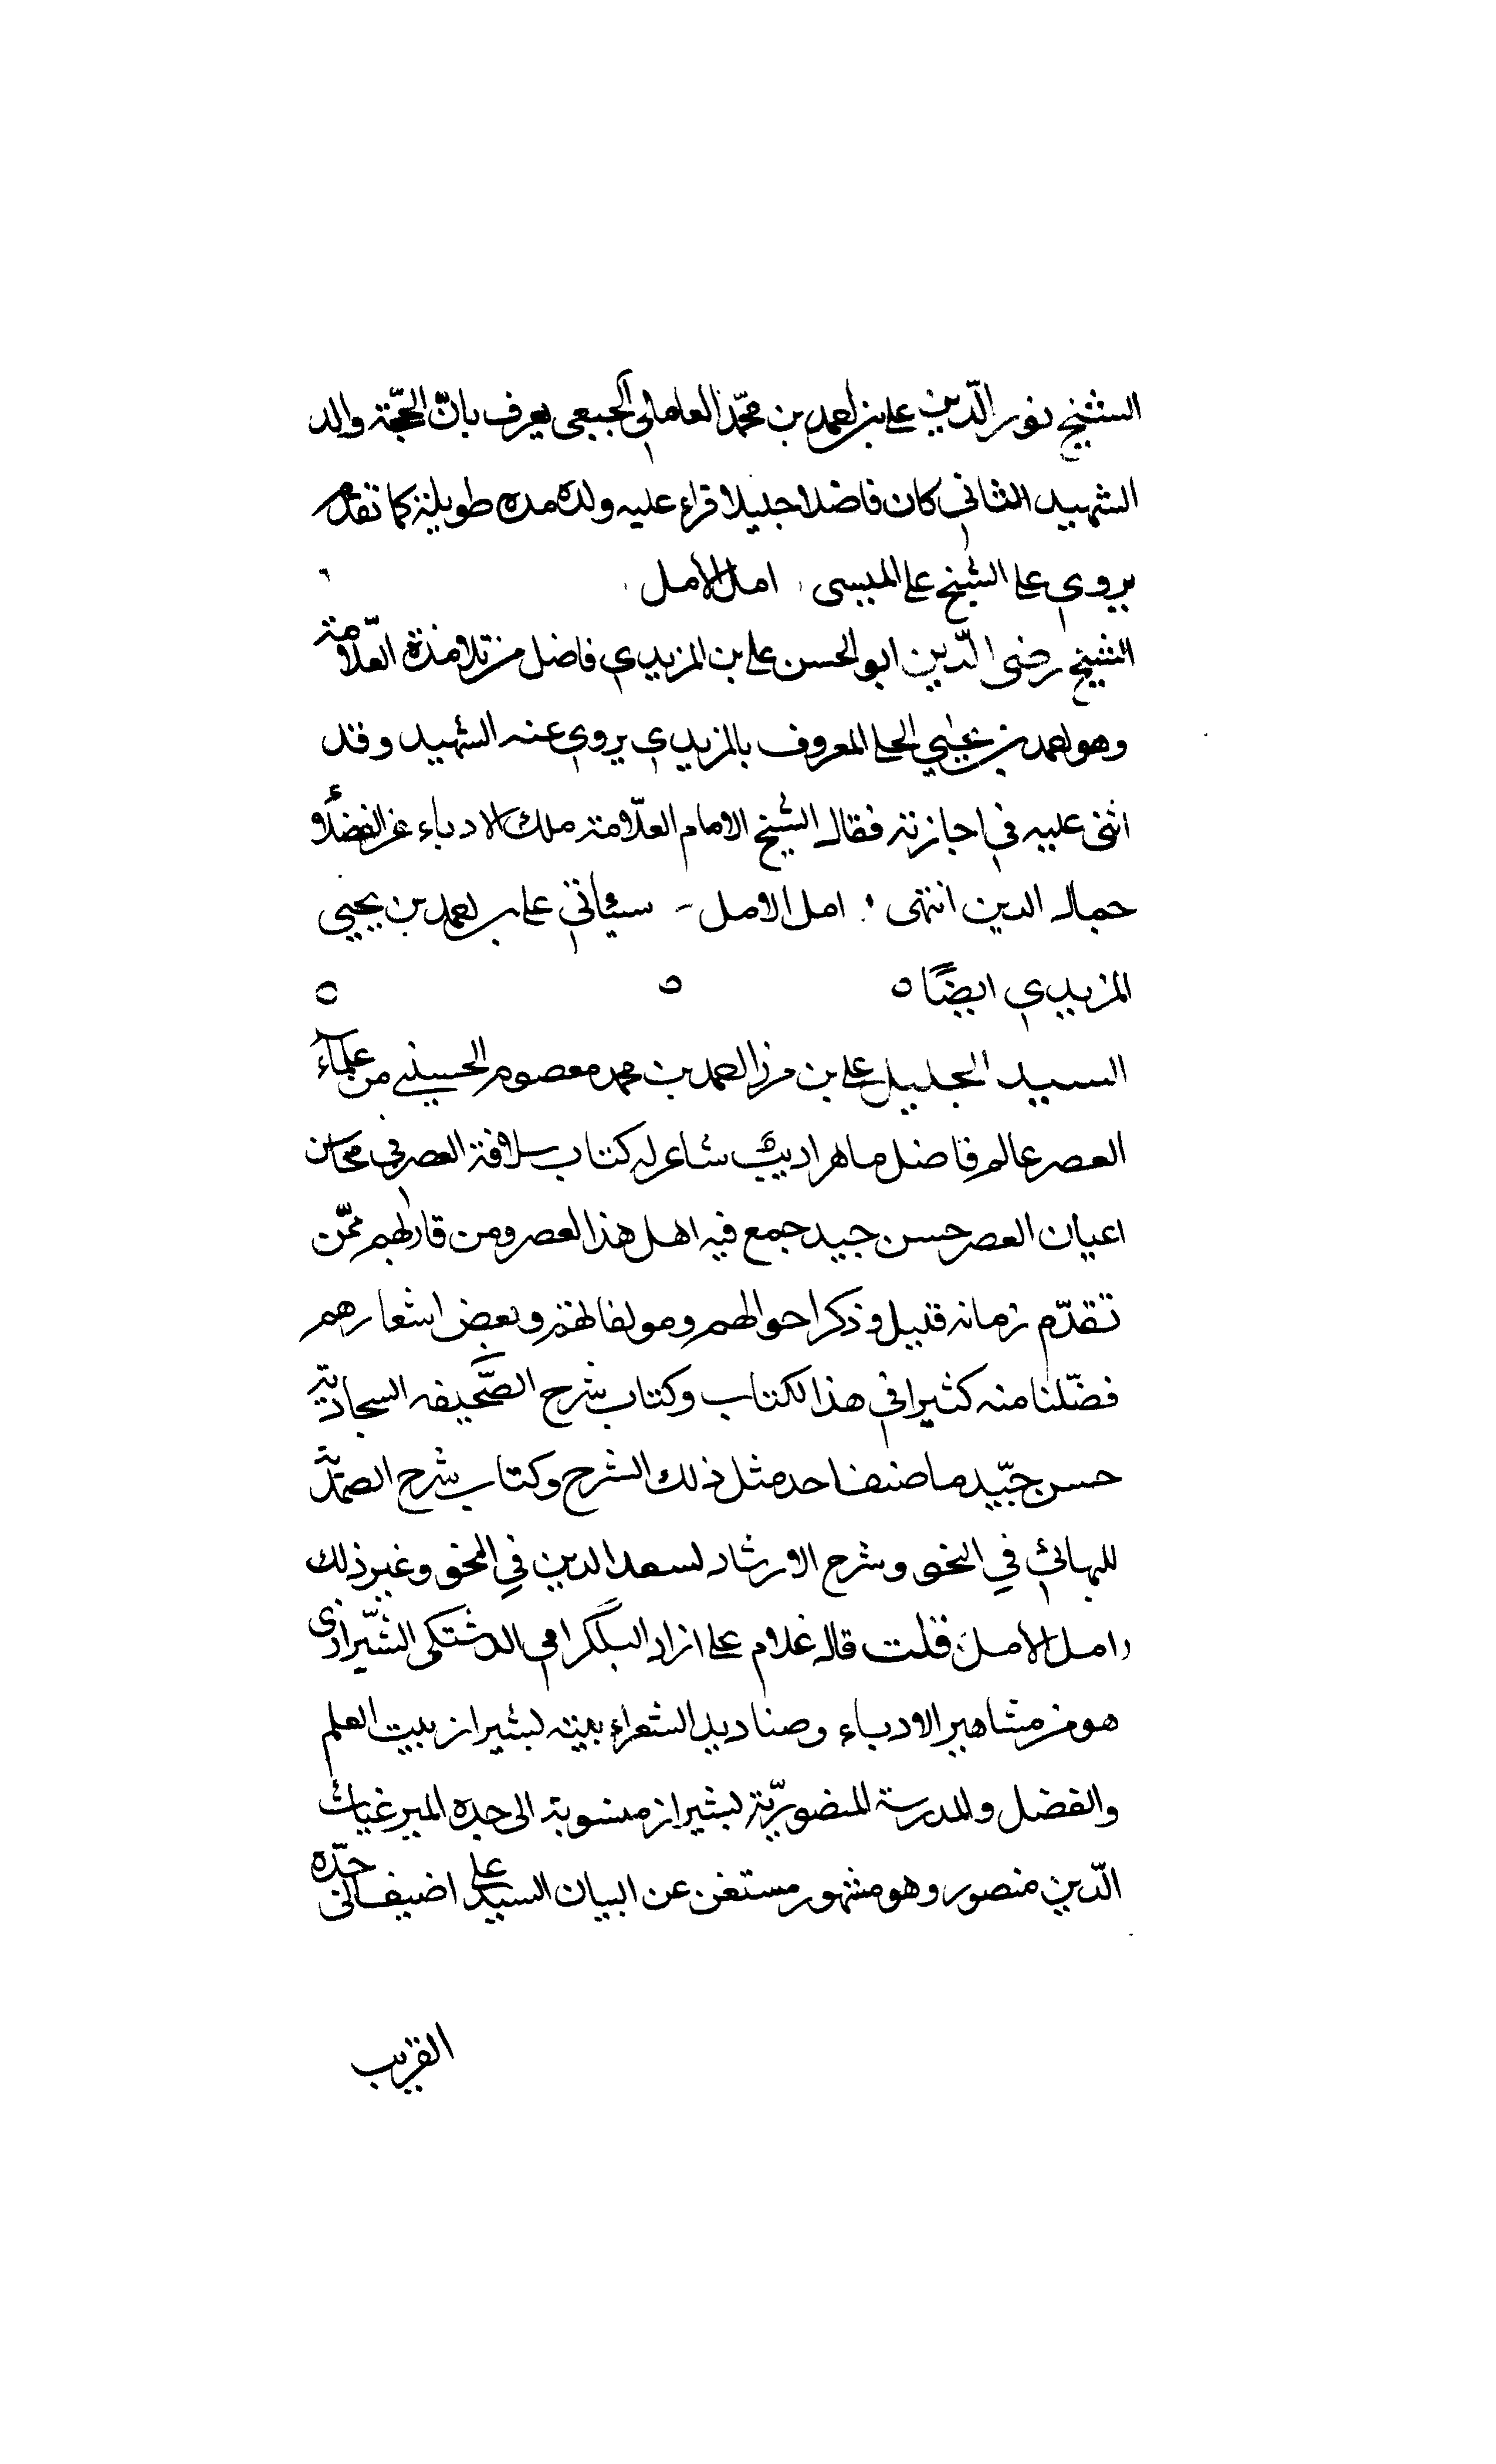 الشيخ نور الدّين علي بن احمد بن محمّد العاملي الجبعي يعرف بابن الحجّة والد
الشهيد الثاني كان فاضلا جليلا قراء عليه ولده مدة طويلة كما تقدم
يروي علي الشيخ علي الميسى امل الأمل
الشيخ رضى الدّين ابو الحسن علي بن المزيدي فاضل من تلامذة العلّامة
وهو احمد بن يحيي الحلي المعروف بالمزيدي يروي عنه الشهيد وقد
اثنى عليه في اجازته فقال الشيخ الامام العلّامة ملك الادباء غر الفضلاء
جمال الدين انتهى امل الامل سيئاتي علي بن احمد بن يحيي
المزيدي ايضًا
السيد الجليل علي بن مرزا احمد بن محمد معصوم الحسيني من علماء
العصر عالم فاضل ماهر اديب شاعر له كتاب سلافة العصر في محاسن
اعيان العصر حسن جيد جمع فيه اهل هذا العصر ومن قاربهم ممّن
تقدّم زمانه قليل وذكر احوالهم ومولفاتهم وبعض اشعارهم
فضّلنا منه كثيرا في هذا الكتاب وكتاب شرح الصّحيفه السجادية
حسن جيّد ما صنف احد مثل ذلك الشرح وكتاب شرح الصمدية
للبهائي في النحو وشرح الارشاد لسعد الدين في النحو وغير ذلك
امل الامل قلت قال غلام علي ازاد البلگرامي الدشتكى الشّيرازى
هو من مشاهير الادباء وصناديد الشعراء بيته بشيراز بيت العلم
والفضل والمدرسة المنصوريّة بشيراز منسوبة الى جده المير غياث
الدّين منصور وهو مشهور مستغن عن البيان السيد علي اضيف الى جدّه
القريب